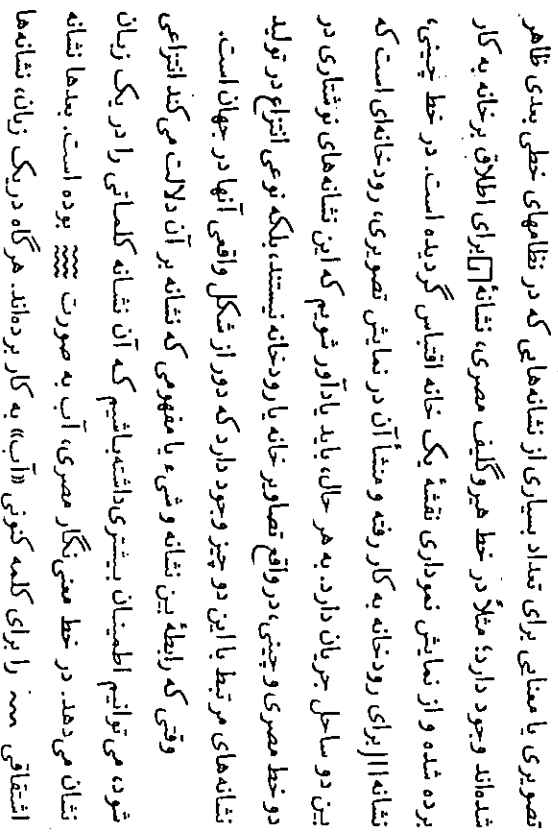 تصویری یا معنایی برای تعداد بسیاری از نشانه‌هایی که در نظامهای خطی بعدی ظاهر
شده‌اند وجود دارد؛ مثلاً در خط هیروگلیف مصری، نشانهٔ برای اطلاق برخانه به کار
برده شده و از نمایش نموداری نقشهٔ یک خانه اقتباس گردیده است. در خط چینی،
نشانه برای رودخانه به کار رفته و منشأ آن در نمایش تصویری، رودخانه‌ای است که
بین دو ساحل جریان دارد. به هر حال، باید یادآور شویم که این نشانه‌های نوشتاری در
دو خط مصری و چینی، درواقع تصاویر خانه یا رودخانه نیستند، بلکه نوعی انتزاع در تولید
نشانه‌های مرتبط با این دو چیز وجود دارد که دور از شکل واقعی آنها در جهان است.
وقتی که رابطهٔ بین نشانه و شیء یا مفهومی که نشانه بر آن دلالت می‌کند انتزاعی
شود، می‌توانیم اطمینان بیشتری داشته‌باشیم که آن نشانه کلماتی را در یک زبان
نشان می‌دهد. در خط معنی‌نگار مصری، آب به صورت بوده است. بعدها نشانه
اشتقاقی را برای کلمه کنونی «آب» به کار برده‌اند. هرگاه دریک زبان، نشانه‌ها